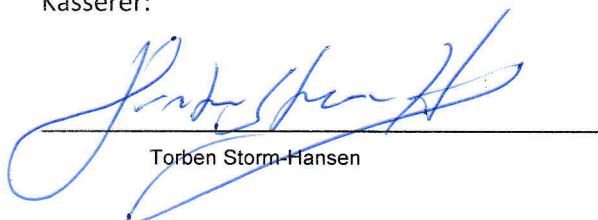 Kasserer:
Torben Storm-Hansen